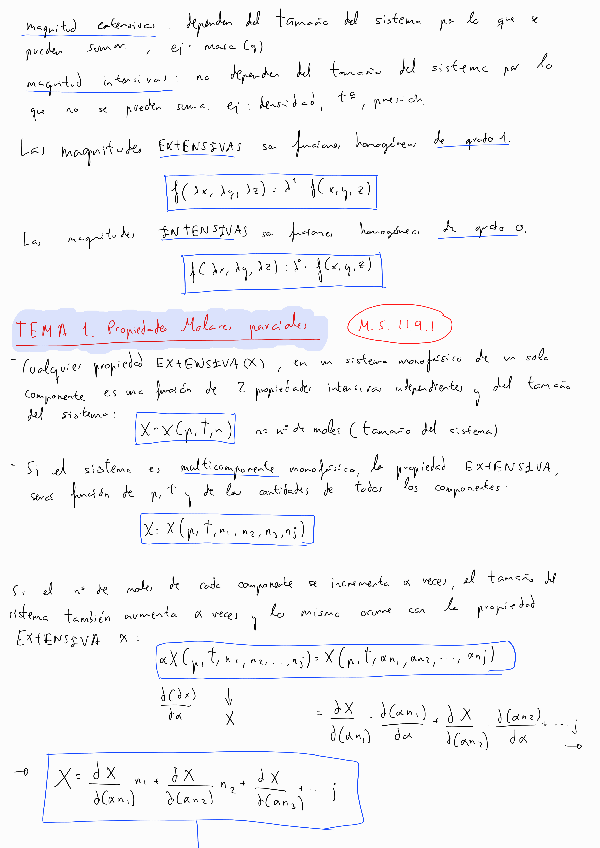 magnitud extensivas: dependen del tamaño del sistema por lo que se
pueden sumar, ej: masa (g)
magnitud intensivas: no dependen del tamaño del sistema por lo
que no se pueden suma. ej: densidad, tª, presión.
Las magnitudes EXTENSIVAS son funciones homogéneas de grado 1.
f(λx, λy, λz) = λ¹ f(x, y, z)
Las magnitudes INTENSIVAS son funciones homogéneas de grado 0.
f(λx, λy, λz) = λ⁰ f(x, y, z)
TEMA 1. Propiedades Molares parciales
- Cualquier propiedad EXTENSIVA (X), en un sistema monofásico de un solo
componente es una función de 2 propiedades intensivas independientes y del tamaño
del sistema:
X = X(p, T, n) n = nº de moles (tamaño del sistema)
- Si el sistema es multicomponente monofásico, la propiedad EXTENSIVA,
será función de p, T y de las cantidades de todos los componentes.
X = X(p, T, n₁, n₂, n₃, nj)
Si el nº de moles de cada componente se incrementa α veces, el tamaño del
sistema también aumenta α veces y lo mismo ocurre con la propiedad
EXTENSIVA X:
αX(p, T, n₁, n₂, ..., nj) = X(p, T, αn₁, αn₂, ..., αnj)
∂(αX)/∂α ↓ X = ∂X/∂(αn₁) · ∂(αn₁)/∂α + ∂X/∂(αn₂) ∂(αn₂)/∂α ... j →
→ X = ∂X/∂(αn₁) n₁ + ∂X/∂(αn₂) n₂ + ∂X/∂(αn₃) + ... j